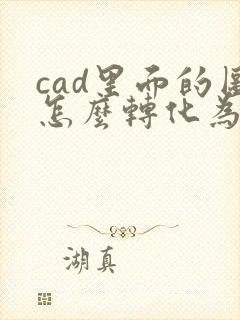 cad里面的圖
怎麼轉化為
湖真